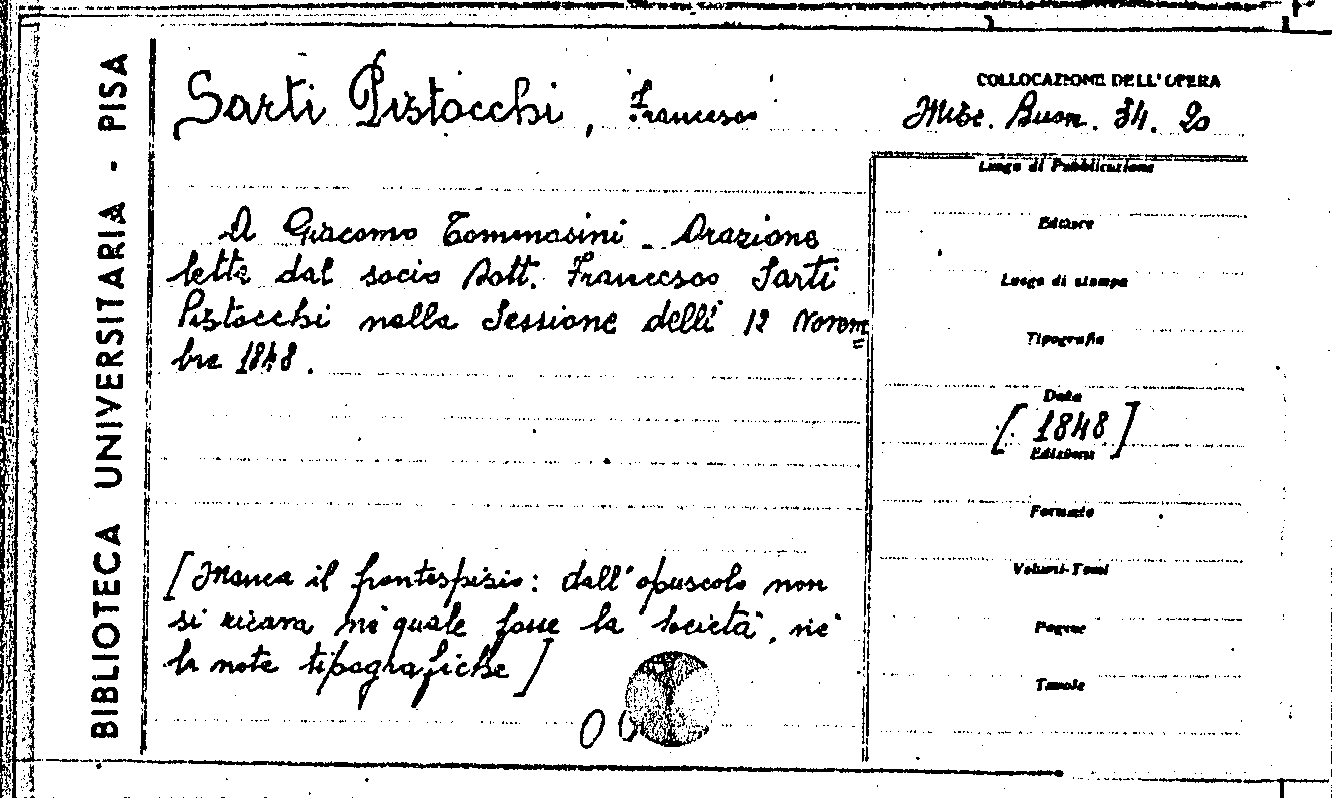 BIBLIOTECA UNIVERSITARIA - PISA
Sarti Pistocchi, Francesco
COLLOCAZIONE DELL'OPERA
Misc. Buon. 34. 20
A Giacomo Tommasini - Orazione
letta dal socio Dott. Francesco Sarti
Pistocchi nella Sessione delli 12 Novem
bre 1848.
[Manca il frontespizio: dall'opuscolo non
si ricava né quale fosse la Società, né
le note tipografiche]
Luogo di Pubblicazione
Editore
Luogo di stampa
Tipografia
Data
[1848]
Edizione
Formato
Volumi-Tomi
Pagine
Tavole